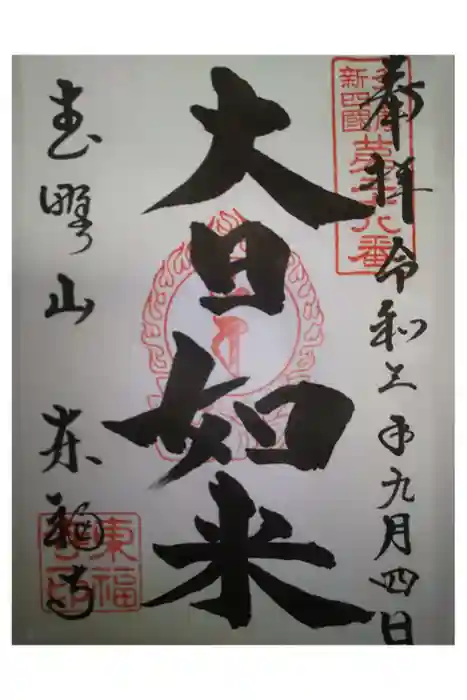 奉拝 令和三年九月四日
新四國
大日如来
武野山 東福寺
東福
寺印